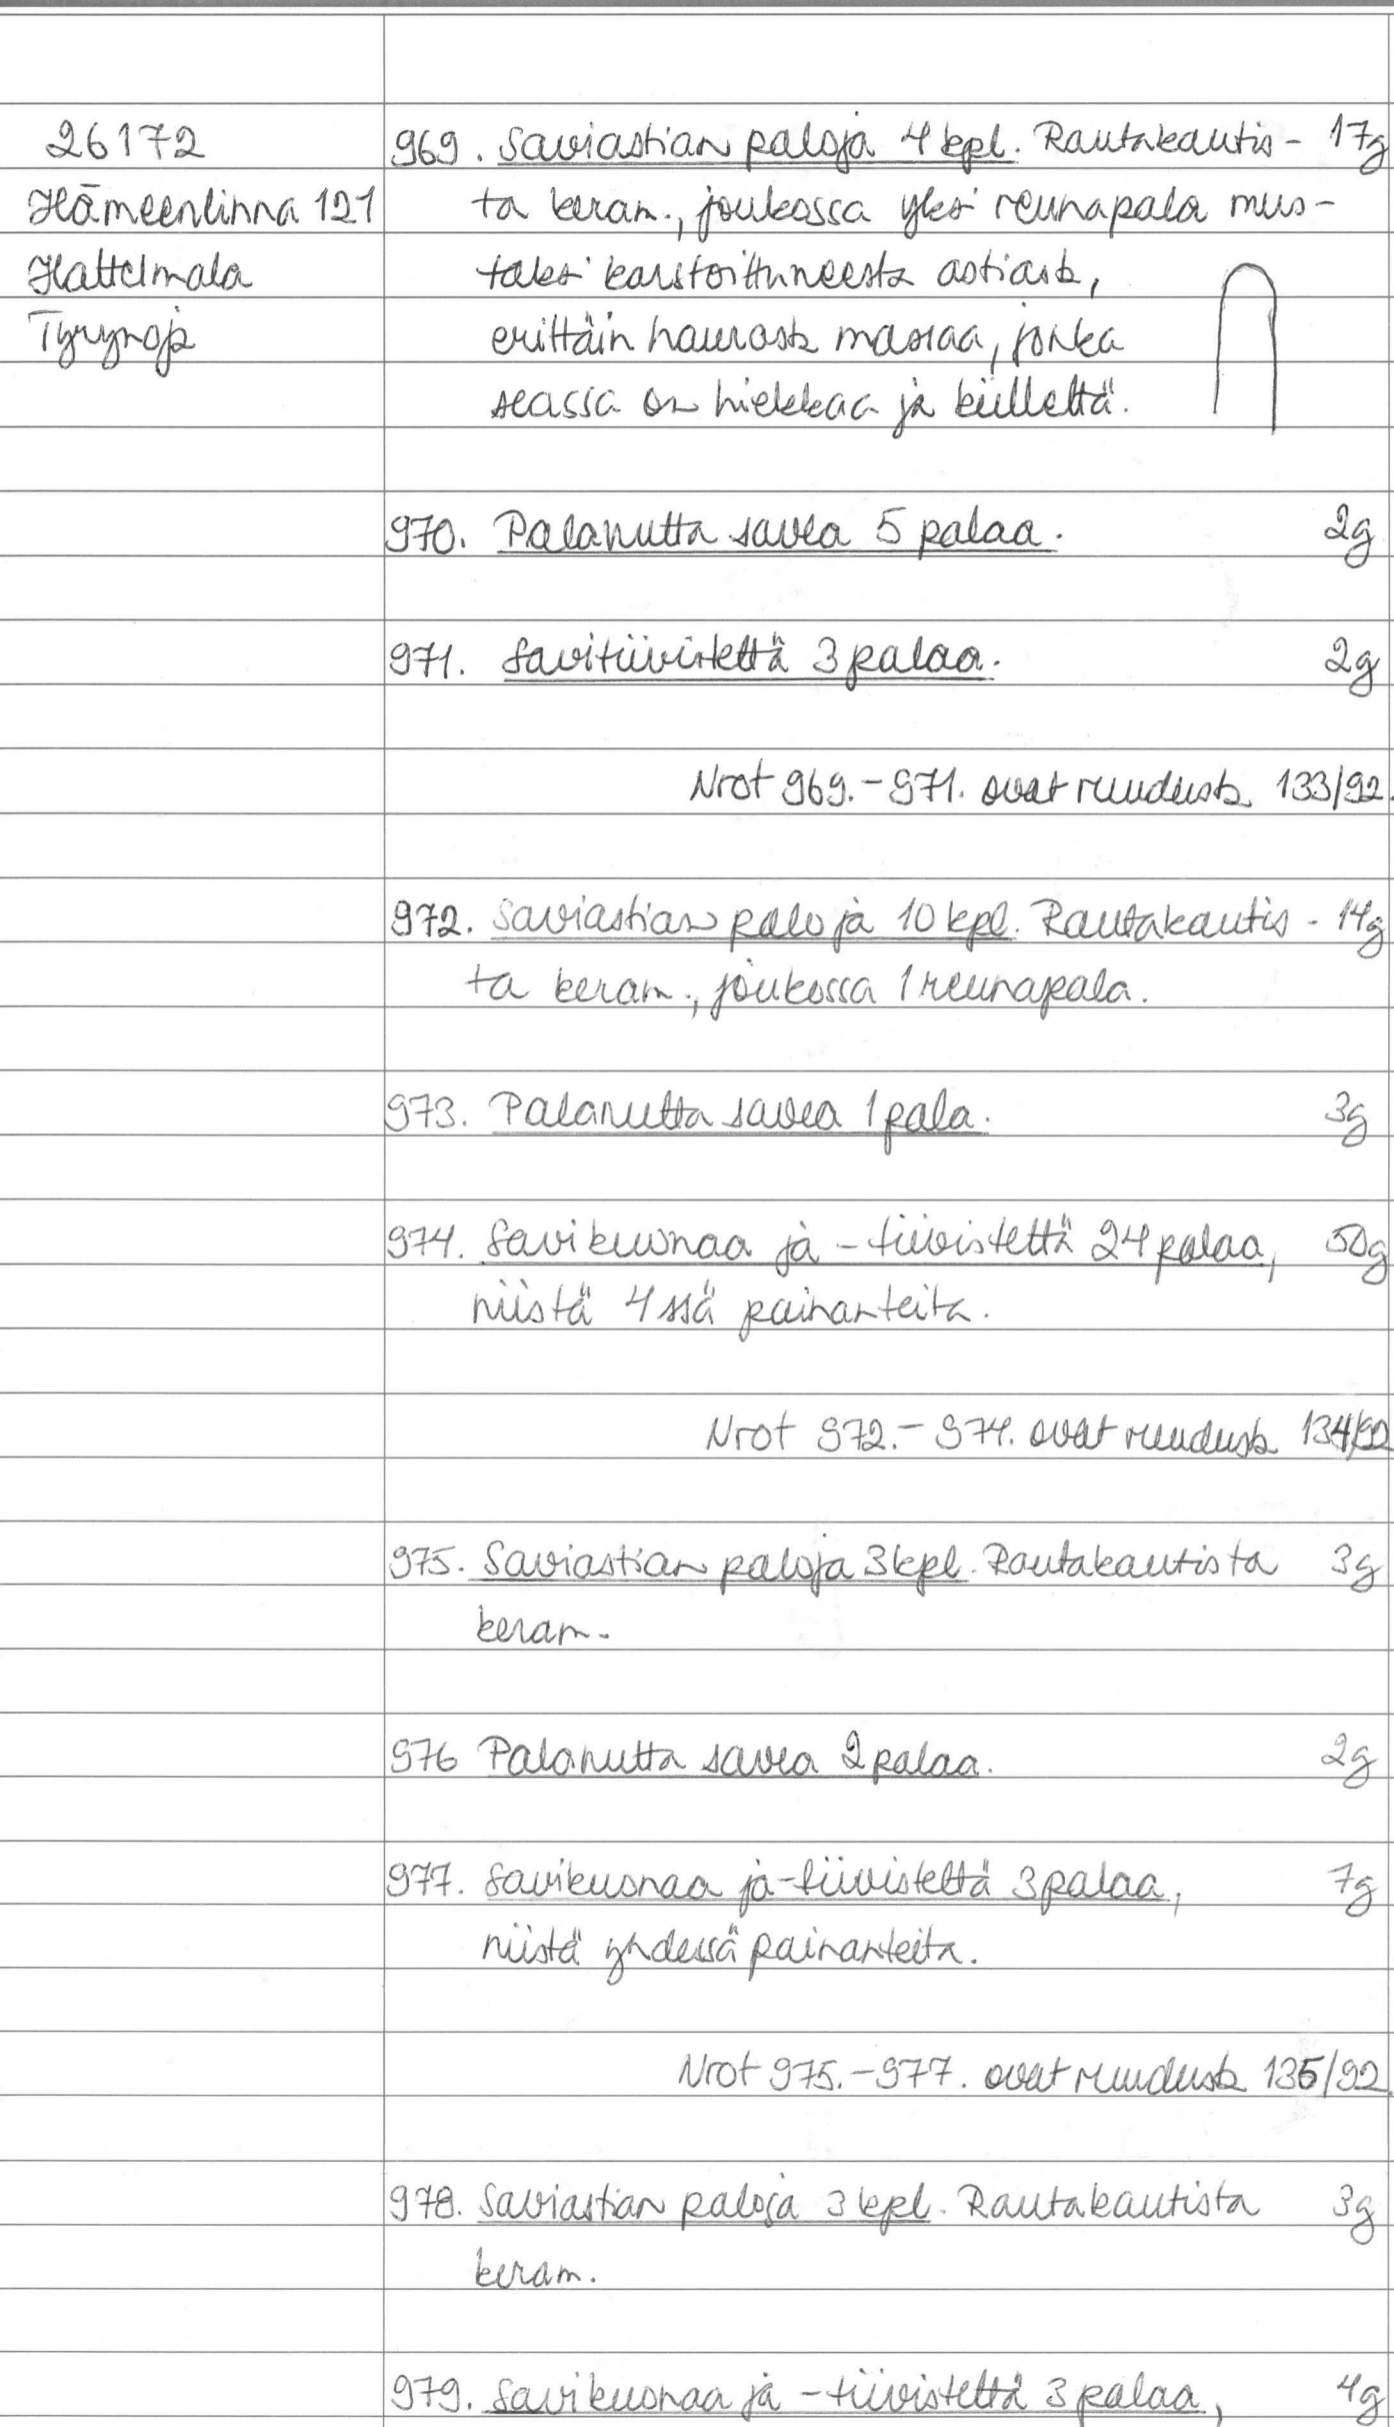 26172
Hämeenlinna 121
Hattelmala
Tyrynoja
969. Saviastian paloja 4 kpl. Rautakautis- 17g
ta keram., joukossa yksi reunapala mus-
taksi karstoittuneesta astiasta,
erittäin haurasta massaa, jonka
seassa on hiekkaa ja kiillettä.
970. Palanutta savea 5 palaa. 2g
971. Savitiivistettä 3 palaa. 2g
Nrot 969.-971. ovat ruudusta 133/92.
972. Saviastian paloja 10 kpl. Rautakautis- 14g
ta keram., joukossa 1 reunapala.
973. Palanutta savea 1 pala. 3g
974. Savikuonaa ja -tiivistettä 24 palaa, 50g
niistä 4 ssä painanteita.
Nrot 972.-974. ovat ruudusta 134/92
975. Saviastian paloja 3 kpl. Rautakautista 3g
keram.
976 Palanutta savea 2 palaa. 2g
977. Savikuonaa ja -tiivistettä 3 palaa, 7g
niistä yhdessä painanteita.
Nrot 975.-977. ovat ruudusta 135/92.
978. Saviastian paloja 3 kpl. Rautakautista 3g
keram.
979. Savikuonaa ja -tiivistettä 3 palaa, 4g